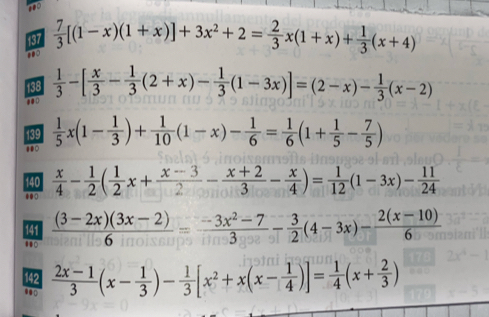 137 7/3[(1 − x)(1 + x)] + 3x² + 2 = 2/3 x(1 + x) + 1/3 (x + 4)
138 1/3 − [x/3 − 1/3 (2 + x) − 1/3 (1 − 3x)] = (2 − x) − 1/3 (x − 2)
139 1/5 x(1 − 1/3) + 1/10 (1 − x) − 1/6 = 1/6 (1 + 1/5 − 7/5)
140 x/4 − 1/2 (1/2 x + (x − 3)/2 − (x + 2)/3 − x/4) = 1/12 (1 − 3x) − 11/24
141 (3 − 2x)(3x − 2)/6 = (−3x² − 7)/3 − 3/2 (4 − 3x) − 2(x − 10)/6
142 (2x − 1)/3 (x − 1/3) − 1/3 [x² + x(x − 1/4)] = 1/4 (x + 2/3)